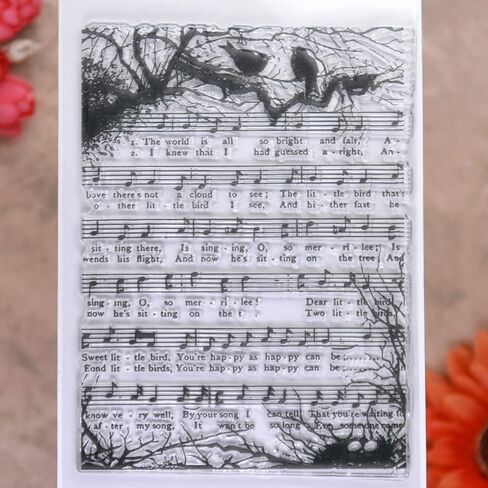 1. The world is all so bright and fair, A-
2. I knew that I had guessed a-right, An-
bove there's not a cloud to see; The lit-tle bird that's
o-ther lit-tle bird I see, And hi-ther fast he
sit-ting there, Is sing-ing, O, so mer-ri-lee; Is
wends his flight, And now he's sit-ting on the tree; And
sing-ing, O, so mer-ri-lee! Dear lit-tle bird,
now he's sit-ting on the t. Two lit-tle birds,
Sweet lit-tle bird, You're hap-py as hap-py can be;
Fond lit-tle birds, You're hap-py as hap-py can be;
know ve-ry well, By your song I can tell, That you're waiting fo
af-ter my song, It won't be so long, Ere some one come